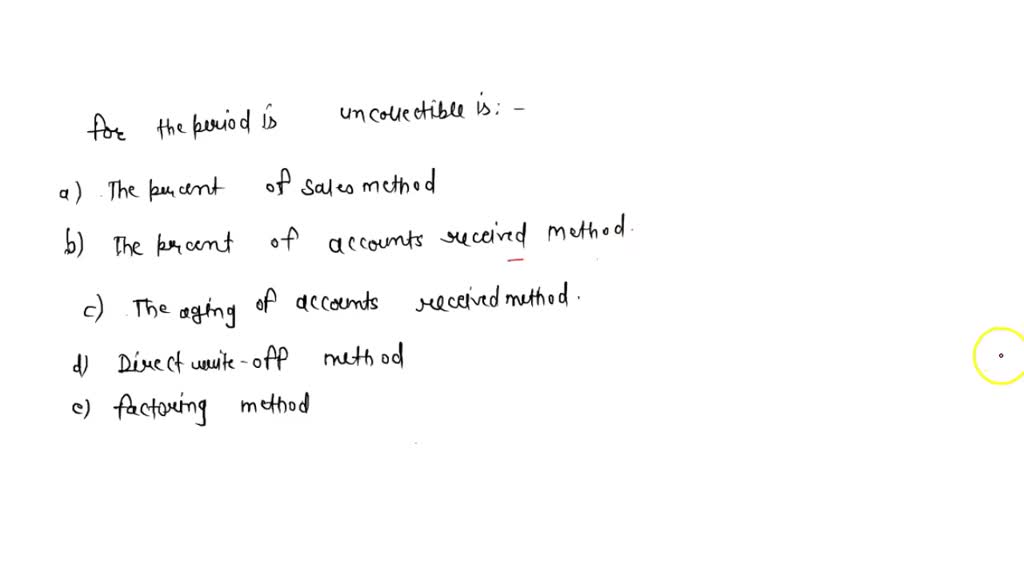 for the period is uncollectible is: -
a) The percent of sales method
b) The percent of accounts received method.
c) The aging of accounts received method.
d) Direct write-off method
e) factoring method